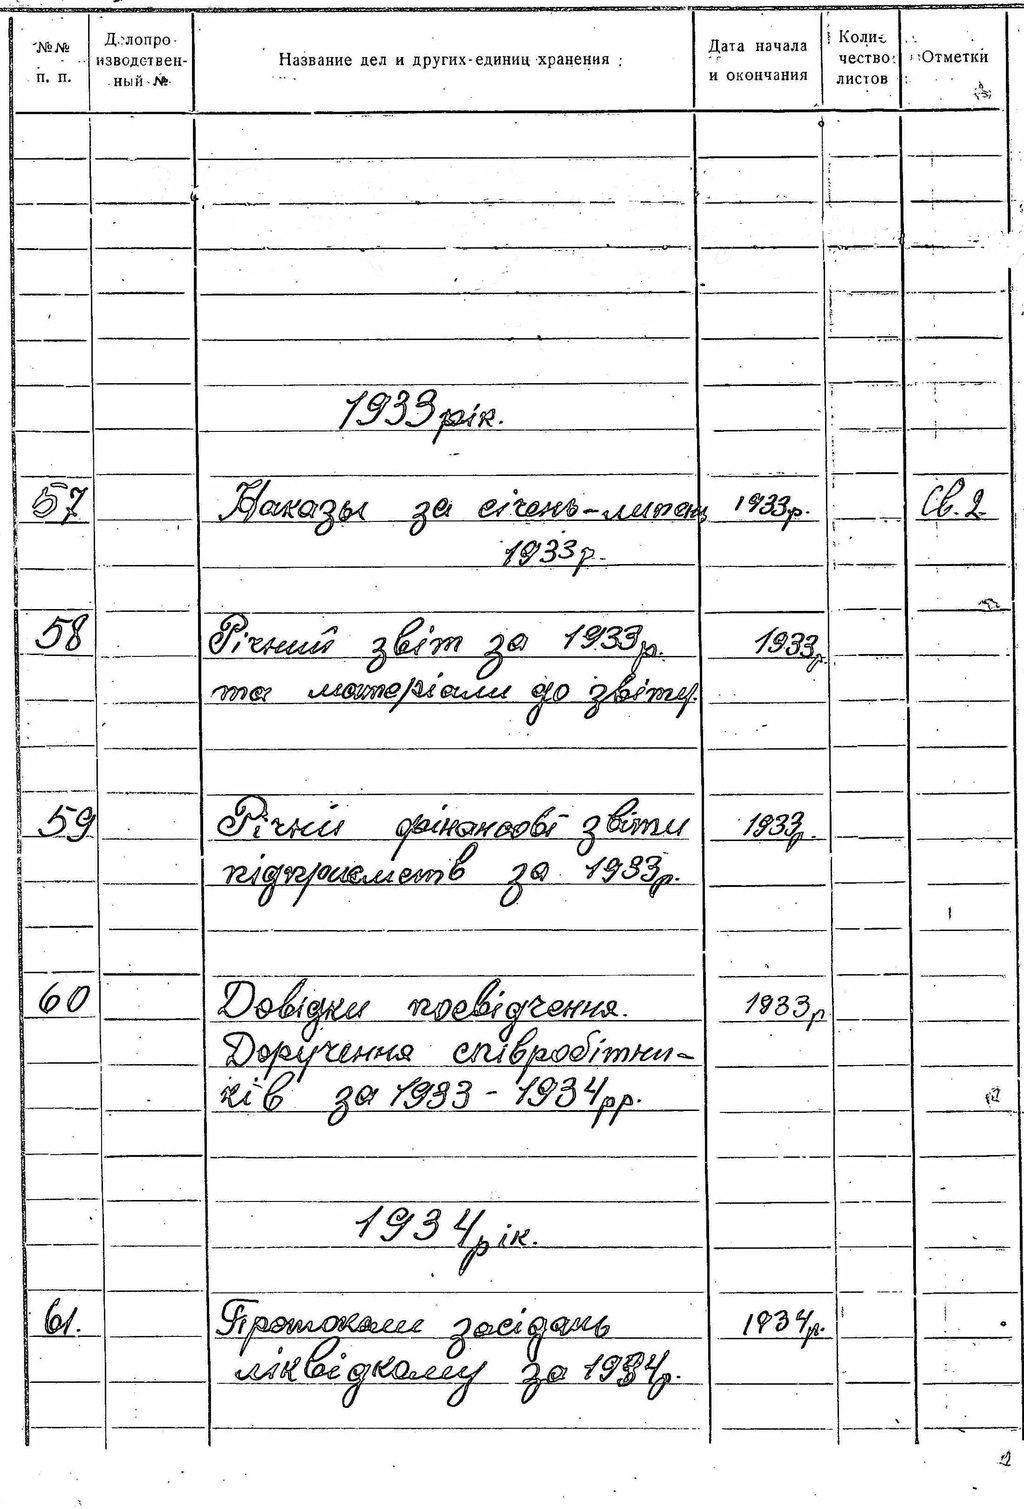 №№ п. п.
Делопроизводствен-ный №
Название дел и других единиц хранения
Дата начала и окончания
Коли-чество листов
Отметки
1933 рік.
57 Наказы за січень-липень 1933р. Св. 2
1933р.
58 Річний звіт за 1933р. 1933р.
та матеріали до звіту.
59 Річні фінансові звіти 1933р.
підприємств за 1933р.
60 Довідки посвідчення. 1933р
Доручення співробітни-
ків за 1933-1934рр.
1934 рік.
61. Протоколи засідань 1934р.
ліквідкому за 1934р.